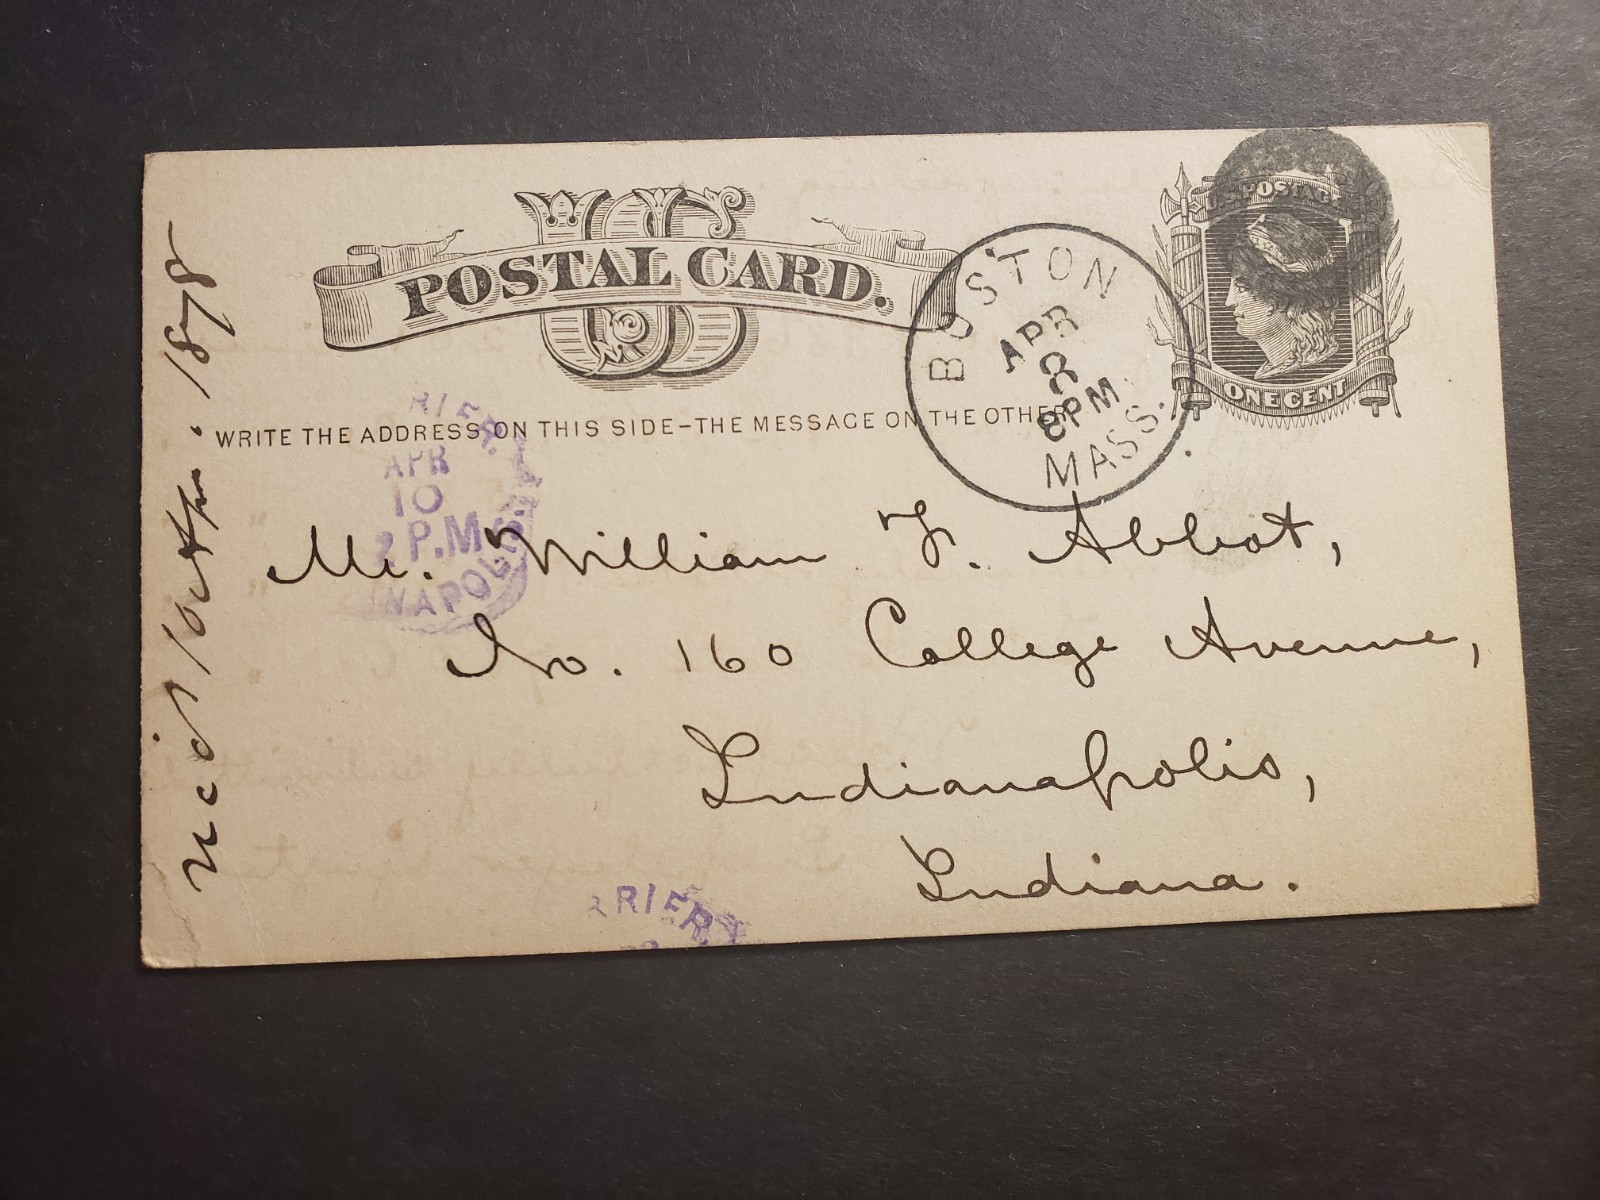 US
POSTAL CARD.
WRITE THE ADDRESS ON THIS SIDE–THE MESSAGE ON THE OTHER
U.S. POSTAGE
ONE CENT
BOSTON
APR
8
8PM
MASS.
RIER
APR
10
2 P.M
NAPOLIS
Mr. William F. Abbot,
No. 160 College Avenue,
Indianapolis,
Indiana.
RRIER
1878